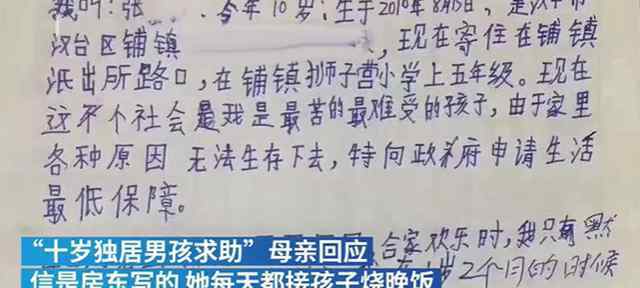 我叫:张 .今年10岁:生于2010年8月6日,是汉中市
汉台区铺镇 ,现在寄住在铺镇
派出所路口,在铺镇狮子营小学上五年级。现在
这个社会是我是最苦的最难受的孩子,由于家里
各种原因 无法生存下去,特向政府申请生活
最低保障。
合家欢乐时,我只有默
岁2个月的时候
“十岁独居男孩求助”母亲回应
信是房东写的 她每天都接孩子烧晚饭